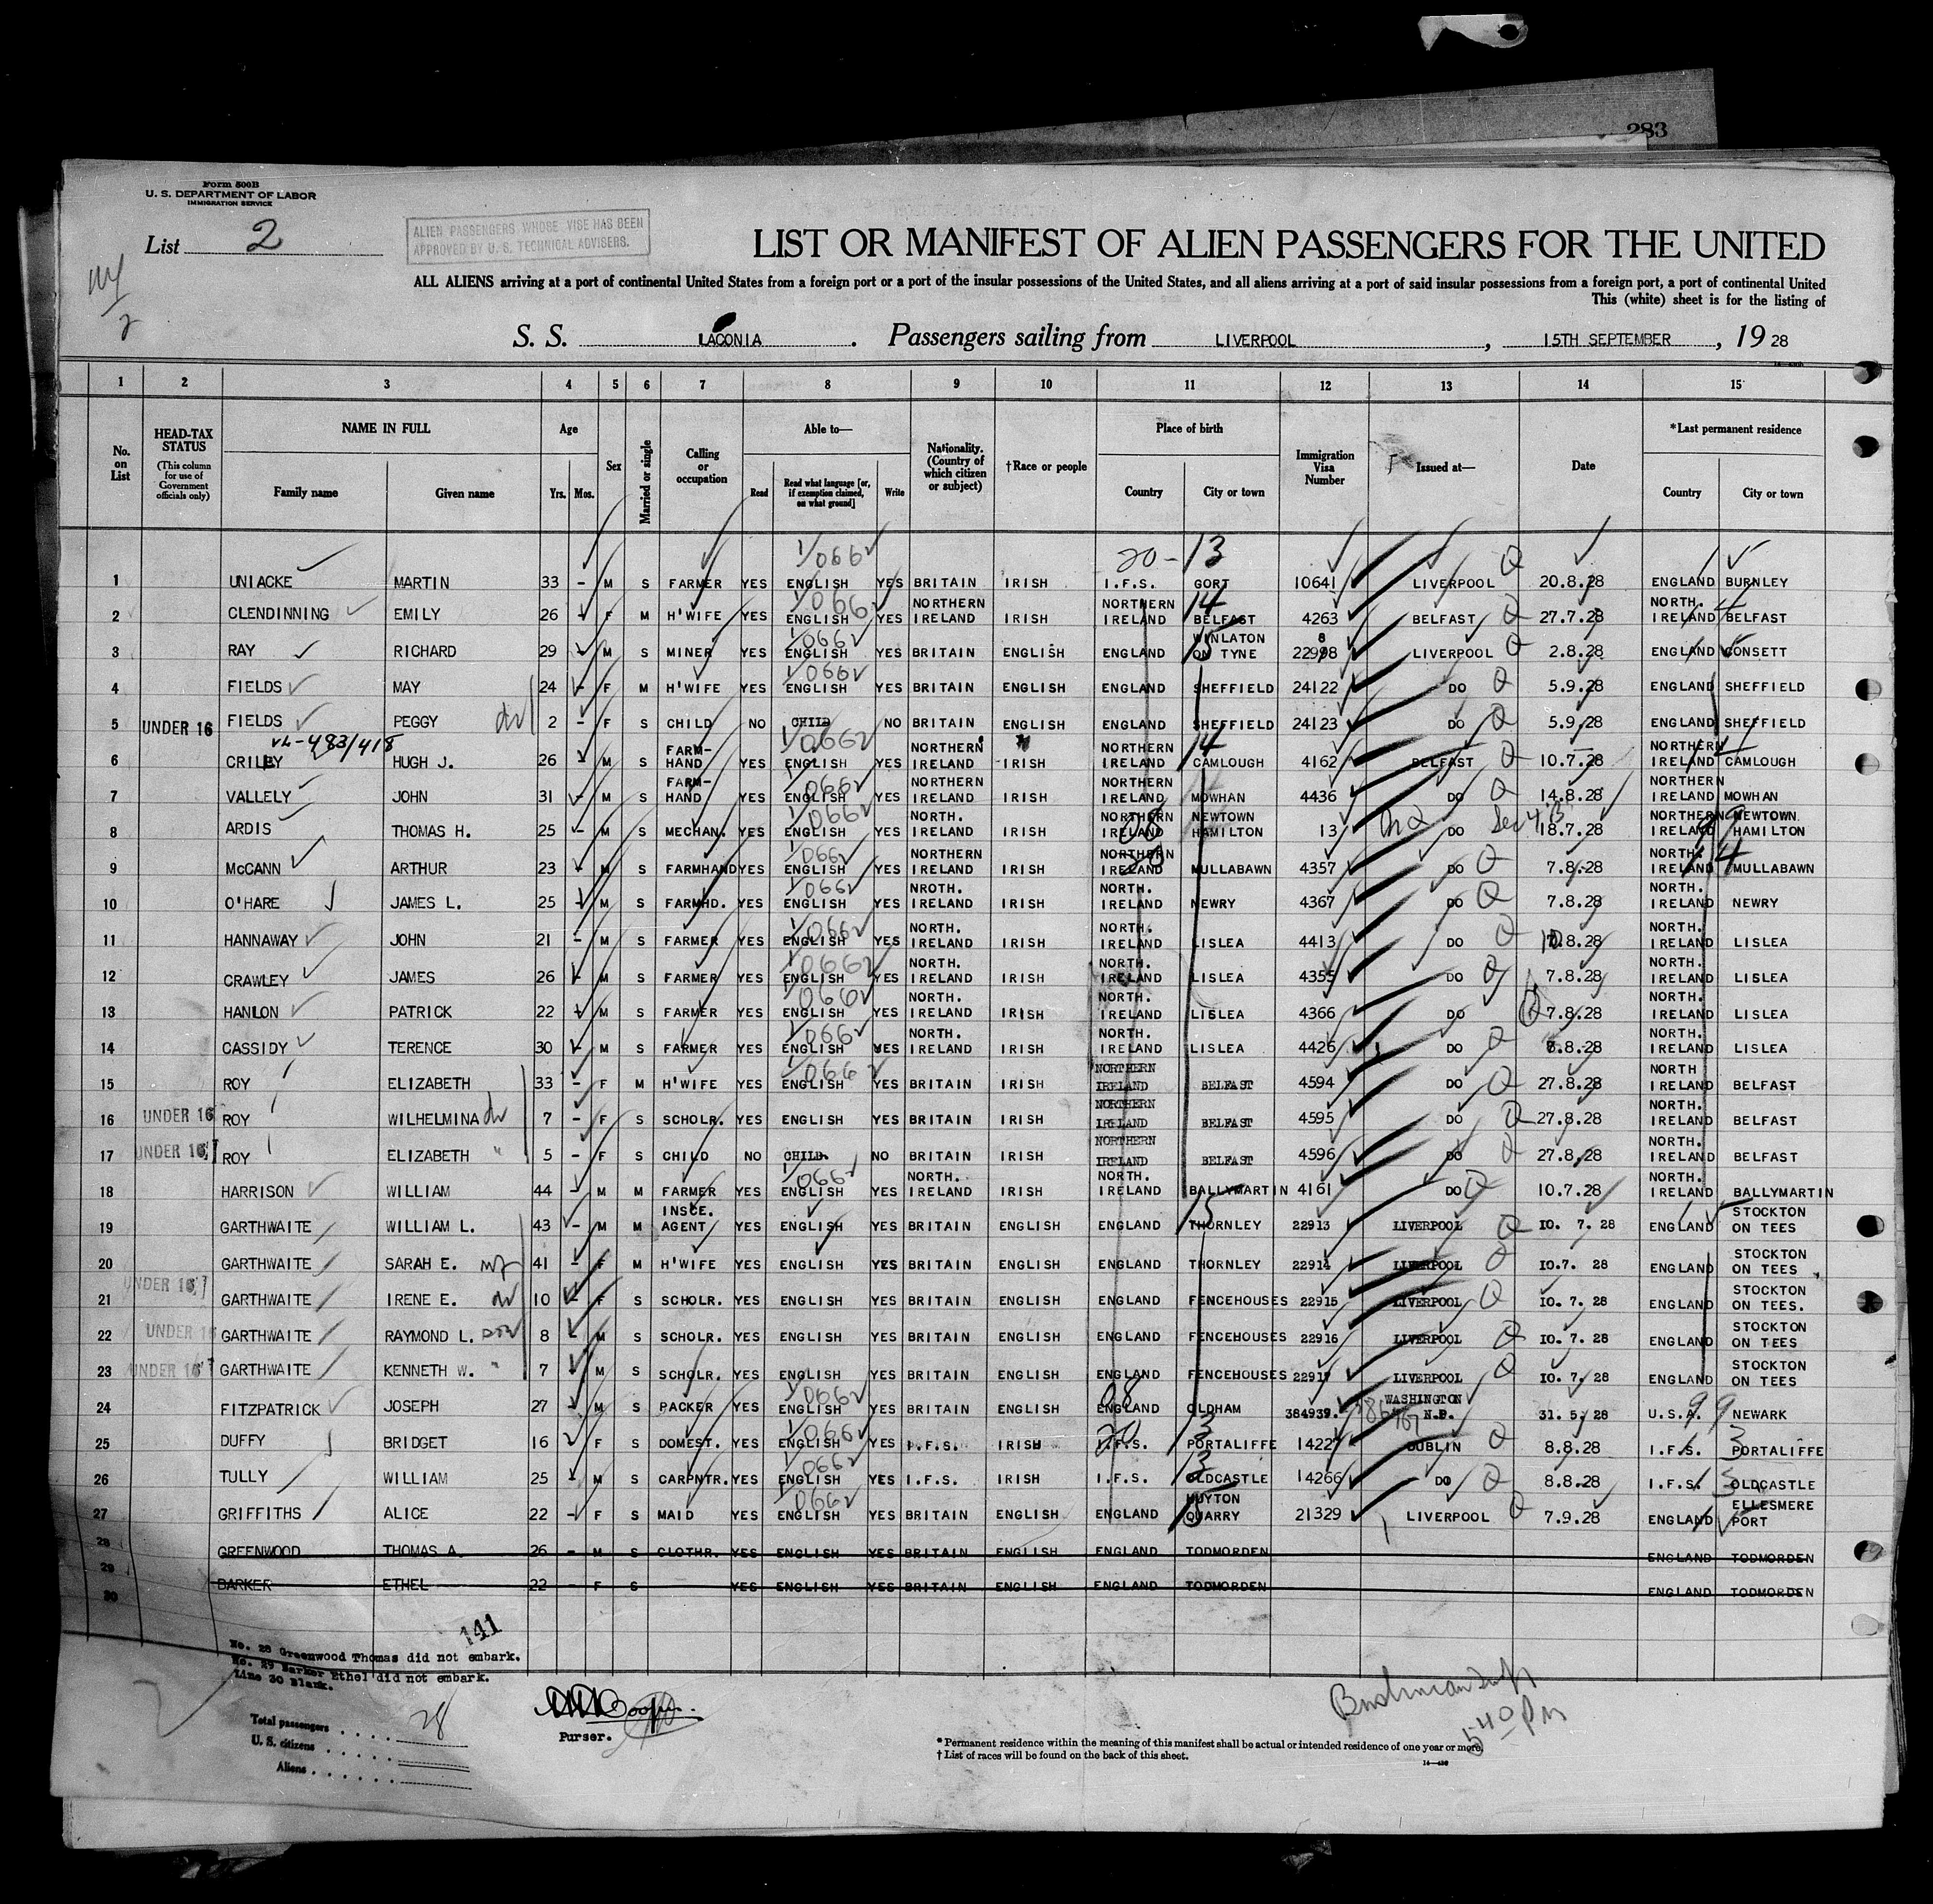 283
Form 500B
U. S. DEPARTMENT OF LABOR
IMMIGRATION SERVICE
List 2
ALIEN PASSENGERS WHOSE VISE HAS BEEN
APPROVED BY U. S. TECHNICAL ADVISERS.
LIST OR MANIFEST OF ALIEN PASSENGERS FOR THE UNITED
ALL ALIENS arriving at a port of continental United States from a foreign port or a port of the insular possessions of the United States, and all aliens arriving at a port of said insular possessions from a foreign port, a port of continental United
This (white) sheet is for the listing of
S. S. LACONIA . Passengers sailing from LIVERPOOL , 15TH SEPTEMBER , 19 28
1 2 3 4 5 6 7 8 9 10 11 12 13 14 15
No. on List HEAD-TAX STATUS (This column for use of Government officials only) NAME IN FULL Family name Given name Age Yrs. Mos. Sex Married or single Calling or occupation Able to— Read Read what language [or, if exemption claimed, on what ground] Write Nationality. (Country of which citizen or subject) †Race or people Place of birth Country City or town Immigration Visa Number Issued at— Date *Last permanent residence Country City or town
20-13
1 UNIACKE MARTIN 33 - M S FARMER YES ENGLISH YES BRITAIN IRISH I.F.S. GORT 10641 LIVERPOOL 20.8.28 ENGLAND BURNLEY
2 CLENDINNING EMILY 26 - F M H'WIFE YES ENGLISH YES NORTHERN IRELAND IRISH NORTHERN IRELAND BELFAST 4263 BELFAST 27.7.28 NORTH. IRELAND BELFAST
3 RAY RICHARD 29 - M S MINER YES ENGLISH YES BRITAIN ENGLISH ENGLAND WINLATON ON TYNE 22998 LIVERPOOL 2.8.28 ENGLAND CONSETT
4 FIELDS MAY 24 - F M H'WIFE YES ENGLISH YES BRITAIN ENGLISH ENGLAND SHEFFIELD 24122 DO 5.9.28 ENGLAND SHEFFIELD
5 UNDER 16 FIELDS PEGGY 2 - F S CHILD NO CHILD NO BRITAIN ENGLISH ENGLAND SHEFFIELD 24123 DO 5.9.28 ENGLAND SHEFFIELD
6 CRILLY HUGH J. 26 - M S FARM-HAND YES ENGLISH YES NORTHERN IRELAND IRISH NORTHERN IRELAND CAMLOUGH 4162 BELFAST 10.7.28 NORTHERN IRELAND CAMLOUGH
7 VALLELY JOHN 31 - M S FARM-HAND YES ENGLISH YES NORTHERN IRELAND IRISH NORTHERN IRELAND MOWHAN 4436 DO 14.8.28 NORTHERN IRELAND MOWHAN
8 ARDIS THOMAS H. 25 - M S MECHAN. YES ENGLISH YES NORTH. IRELAND IRISH NORTHERN IRELAND NEWTOWN HAMILTON 13 DO 18.7.28 NORTHERN IRELAND NEWTOWN. HAMILTON
9 McCANN ARTHUR 23 - M S FARMHAND YES ENGLISH YES NORTHERN IRELAND IRISH NORTHERN IRELAND MULLABAWN 4357 DO 7.8.28 NORTH. IRELAND MULLABAWN
10 O'HARE JAMES L. 25 - M S FARMHD. YES ENGLISH YES NROTH. IRELAND IRISH NORTH. IRELAND NEWRY 4367 DO 7.8.28 NORTH. IRELAND NEWRY
11 HANNAWAY JOHN 21 - M S FARMER YES ENGLISH YES NORTH. IRELAND IRISH NORTH. IRELAND LISLEA 4413 DO 10.8.28 NORTH. IRELAND LISLEA
12 CRAWLEY JAMES 26 - M S FARMER YES ENGLISH YES NORTH. IRELAND IRISH NORTH. IRELAND LISLEA 4355 DO 7.8.28 NORTH. IRELAND LISLEA
13 HANLON PATRICK 22 - M S FARMER YES ENGLISH YES NORTH. IRELAND IRISH NORTH. IRELAND LISLEA 4366 DO 7.8.28 NORTH. IRELAND LISLEA
14 CASSIDY TERENCE 30 - M S FARMER YES ENGLISH YES NORTH. IRELAND IRISH NORTH. IRELAND LISLEA 4426 DO 8.28 NORTH. IRELAND LISLEA
15 ROY ELIZABETH 33 - F M H'WIFE YES ENGLISH YES BRITAIN IRISH NORTHERN IRELAND BELFAST 4594 DO 27.8.28 NORTH IRELAND BELFAST
16 UNDER 16 ROY WILHELMINA 7 - F S SCHOLR. YES ENGLISH YES BRITAIN IRISH NORTHERN IRELAND BELFAST 4595 DO 27.8.28 NORTH. IRELAND BELFAST
17 UNDER 16 ROY ELIZABETH " 5 - F S CHILD NO CHILD NO BRITAIN IRISH NORTHERN IRELAND BELFAST 4596 DO 27.8.28 NORTH. IRELAND BELFAST
18 HARRISON WILLIAM 44 - M M FARMER YES ENGLISH YES NORTH. IRELAND IRISH NORTH. IRELAND BALLYMARTIN 4161 DO 10.7.28 NORTH. IRELAND BALLYMARTIN
19 GARTHWAITE WILLIAM L. 43 - M M INSCE. AGENT YES ENGLISH YES BRITAIN ENGLISH ENGLAND THORNLEY 22913 LIVERPOOL 10. 7. 28 ENGLAND STOCKTON ON TEES
20 GARTHWAITE SARAH E. 41 - F M H'WIFE YES ENGLISH YES BRITAIN ENGLISH ENGLAND THORNLEY 22914 LIVERPOOL 10.7. 28 ENGLAND STOCKTON ON TEES
21 UNDER 16 GARTHWAITE IRENE E. 10 - F S SCHOLR. YES ENGLISH YES BRITAIN ENGLISH ENGLAND FENCEHOUSES 22915 LIVERPOOL 10. 7. 28 ENGLAND STOCKTON ON TEES.
22 UNDER 16 GARTHWAITE RAYMOND L. son 8 - M S SCHOLR. YES ENGLISH YES BRITAIN ENGLISH ENGLAND FENCEHOUSES 22916 LIVERPOOL 10. 7. 28 ENGLAND STOCKTON ON TEES
23 UNDER 16 GARTHWAITE KENNETH W. " 7 - M S SCHOLR. YES ENGLISH YES BRITAIN ENGLISH ENGLAND FENCEHOUSES 22917 LIVERPOOL 10. 7. 28 ENGLAND STOCKTON ON TEES
24 FITZPATRICK JOSEPH 27 - M S PACKER YES ENGLISH YES BRITAIN ENGLISH ENGLAND OLDHAM 384939. WASHINGTON 31. 5. 28 U.S.A. NEWARK
25 DUFFY BRIDGET 16 F S DOMEST. YES ENGLISH YES I.F.S. IRISH I.F.S. PORTALIFFE 14227 DUBLIN 8.8.28 I.F.S. PORTALIFFE
26 TULLY WILLIAM 25 - M S CARPNTR. YES ENGLISH YES I.F.S. IRISH I.F.S. OLDCASTLE 14266 DO 8.8.28 I.F.S. OLDCASTLE
27 GRIFFITHS ALICE 22 - F S MAID YES ENGLISH YES BRITAIN ENGLISH ENGLAND HUYTON QUARRY 21329 LIVERPOOL 7.9.28 ENGLAND ELLESMERE PORT
28 GREENWOOD THOMAS A. 26 - M S CLOTHR. YES ENGLISH YES BRITAIN ENGLISH ENGLAND TODMORDEN ENGLAND TODMORDEN
29 BARKER ETHEL 22 - F S YES ENGLISH YES BRITAIN ENGLISH ENGLAND TODMORDEN ENGLAND TODMORDEN
30
141
No. 28 Greenwood Thomas did not embark.
No. 29 Barker Ethel did not embark.
Line 30 Blank.
Total passengers 28
U. S. citizens
Aliens
Purser.
5 40 PM
*Permanent residence within the meaning of this manifest shall be actual or intended residence of one year or more.
†List of races will be found on the back of this sheet.